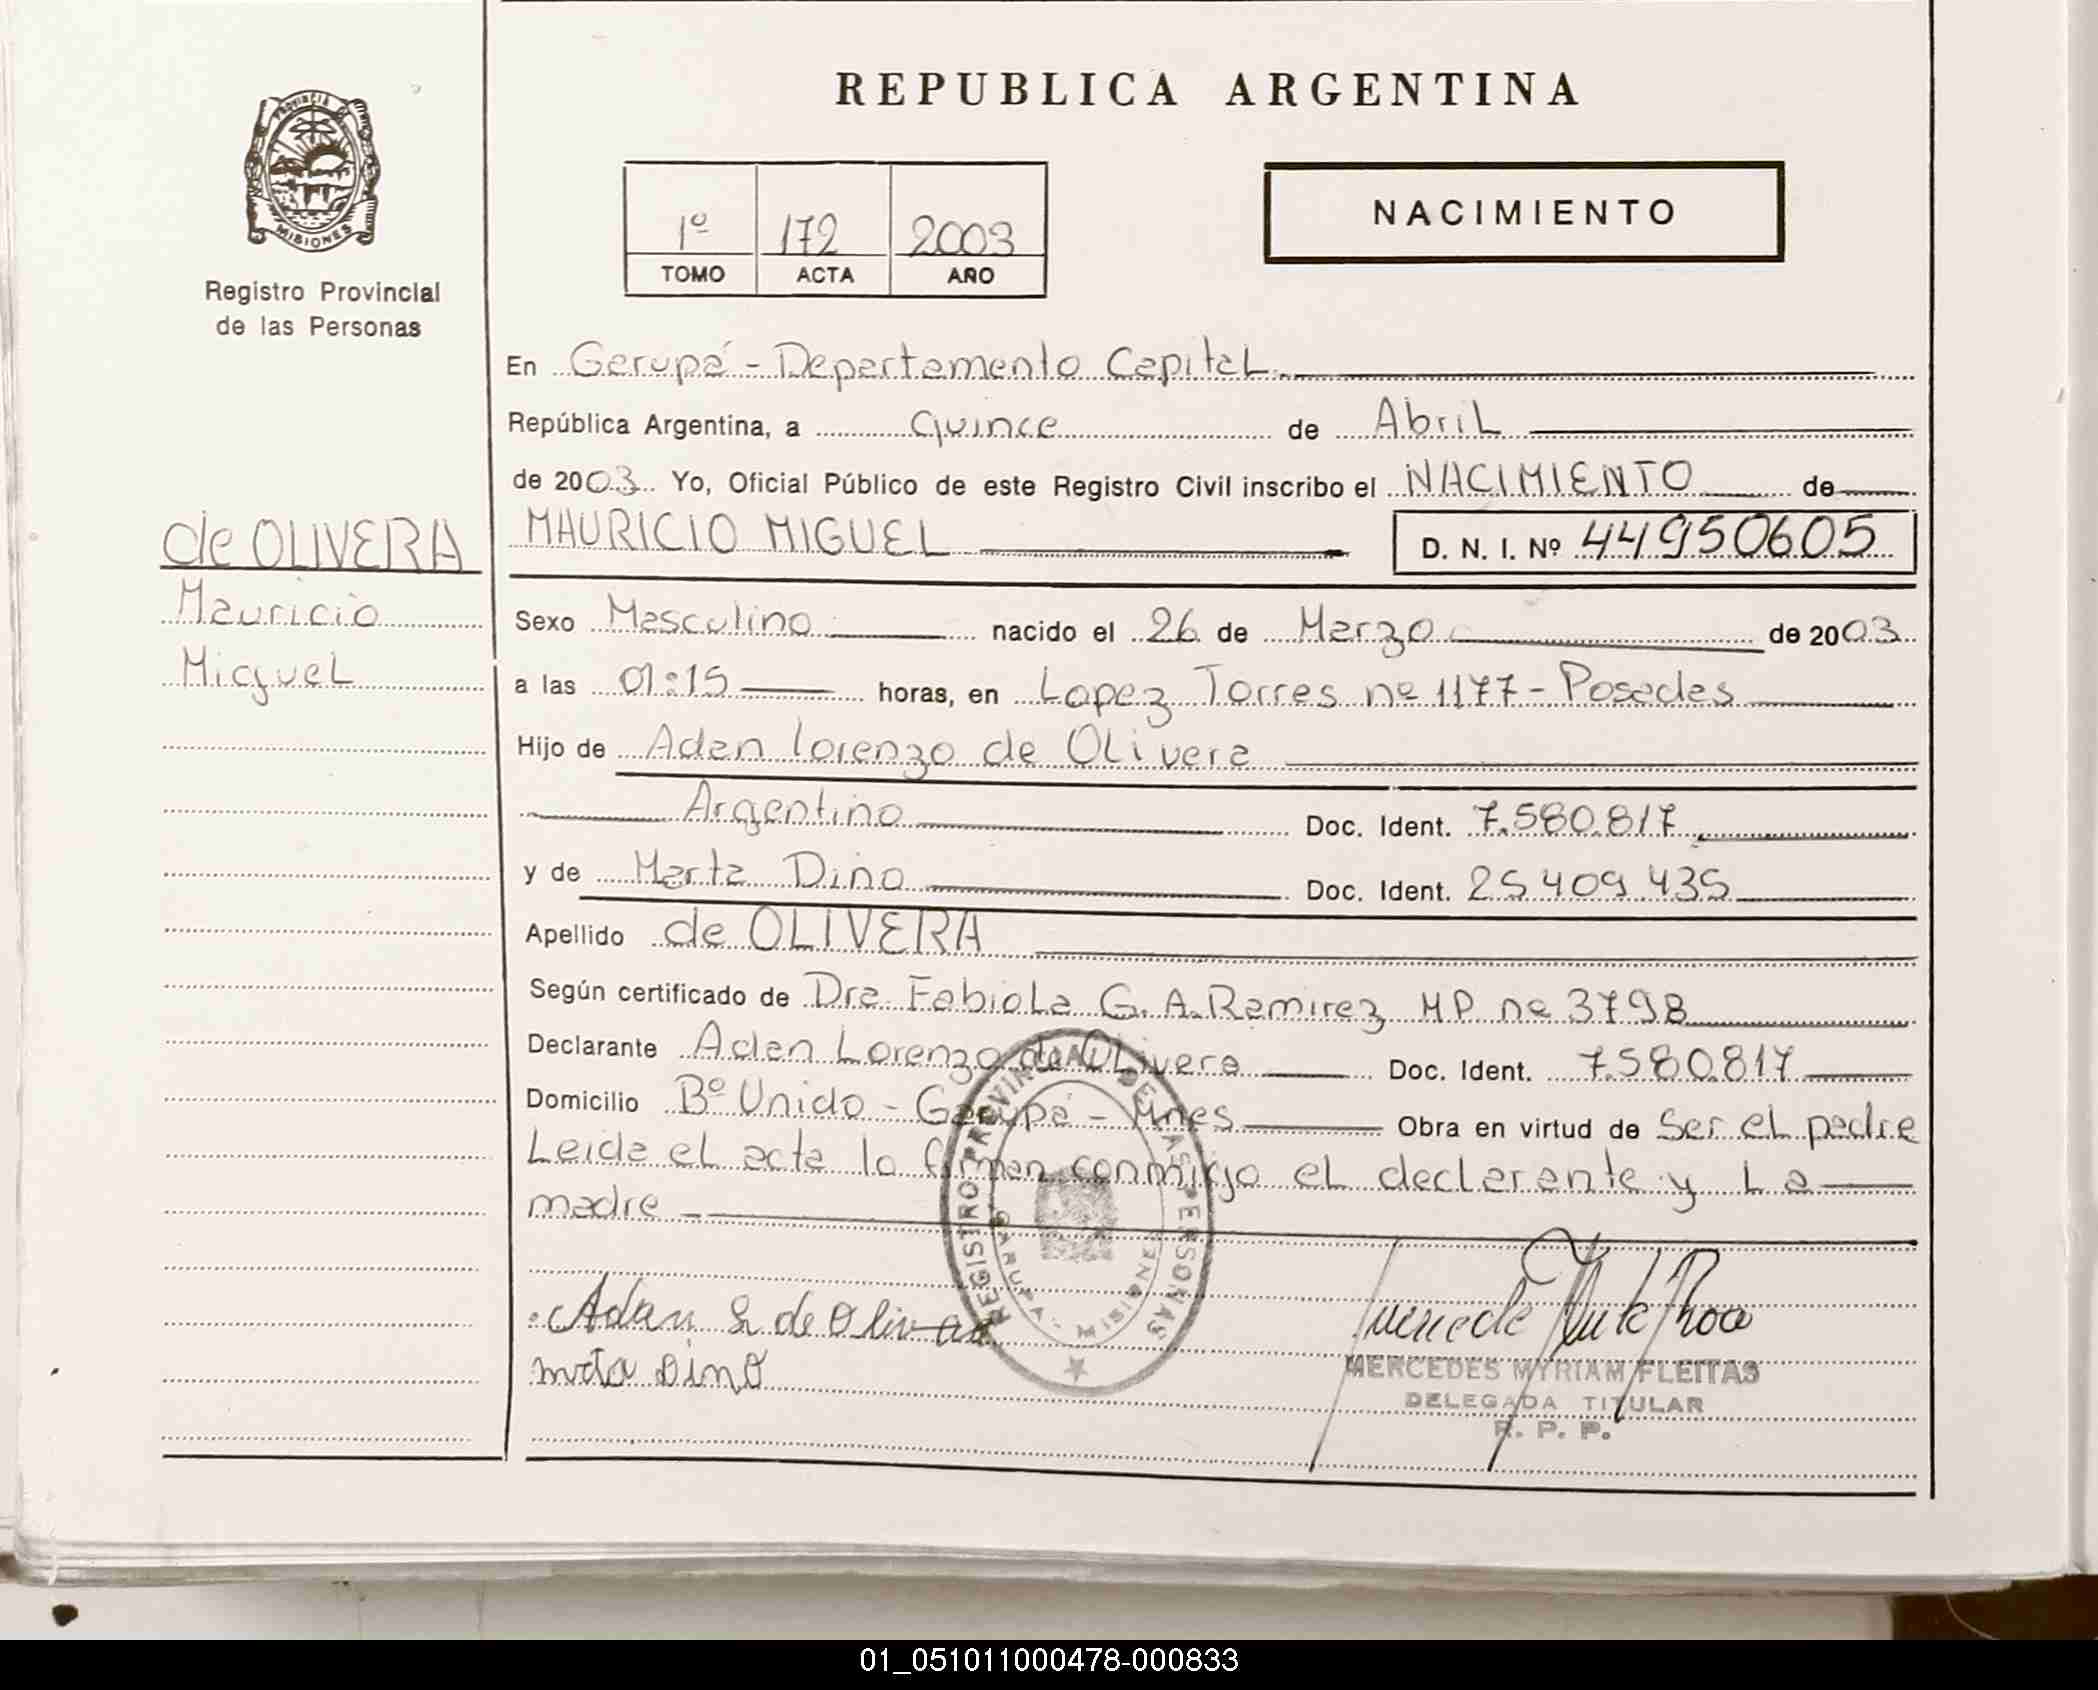 REPUBLICA ARGENTINA
PROVINCIA DE
MISIONES
Registro Provincial
de las Personas
1º 172 2003
TOMO ACTA AÑO
NACIMIENTO
En Garupá - Departamento Capital
República Argentina, a Quince de Abril
de 2003 Yo, Oficial Público de este Registro Civil inscribo el NACIMIENTO de
MAURICIO MIGUEL D. N. I. Nº 44950605
de OLIVERA
Mauricio
Miguel
Sexo Masculino nacido el 26 de Marzo de 2003
a las 01:15 horas, en Lopez Torres nº 1177 - Posadas
Hijo de Adan Lorenzo de Olivera
Argentino Doc. Ident. 7.580.817
y de Marta Dino Doc. Ident. 25.409.435
Apellido de OLIVERA
Según certificado de Dra. Fabiola G. A. Ramirez MP nº 3798
Declarante Adan Lorenzo de Olivera Doc. Ident. 7.580.817
Domicilio Bº Unido - Garupá - Mnes Obra en virtud de Ser el padre
Leida el acta la firman conmigo el declarante y La
madre
REGISTRO PROVINCIAL DE LAS PERSONAS
GARUPA - MISIONES
Adan L de Olivera
Mrta Dino
MERCEDES MYRIAM FLEITAS
DELEGADA TITULAR
R. P. P.
01_051011000478-000833